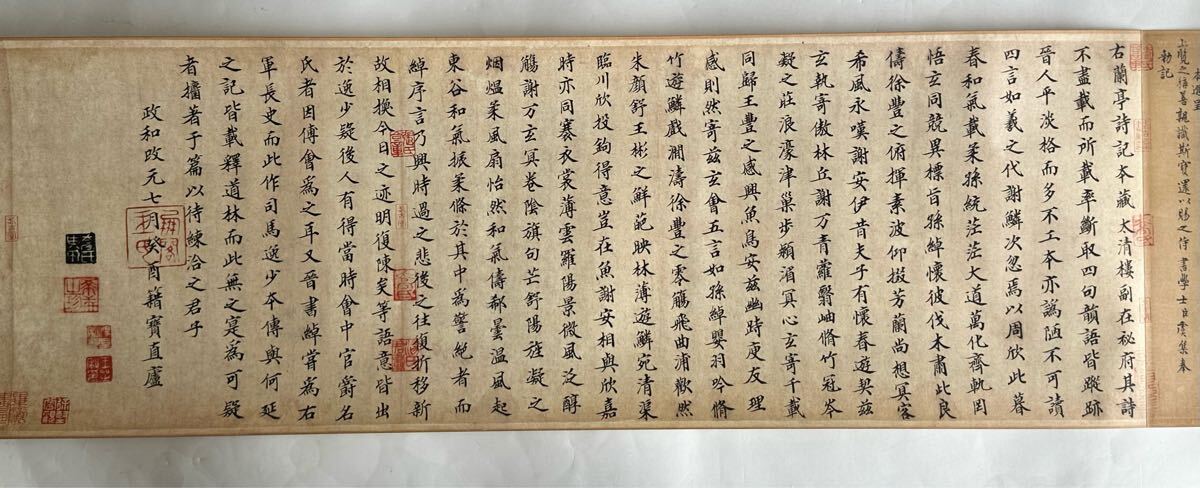 上覽之彌善親識斯寶還以賜之侍書學士臣虞集奉
勑記
古蘭亭詩記本藏太清樓副在秘府其詩
不盡載而所載率斷取四句韻語皆蹤跡
晉人平淡格而多不工本亦譌陋不可讀
四言如羲之代謝鱗次忽焉以周欣此暮
春和氣載柔孫統茫茫大道萬化齊軌罔
悟玄同競異標旨孫綽懷彼伐木肅此良
儔徐豐之俯揮素波仰掇芳蘭尚想冥客
希風永嘆謝安伊昔夫子有懷春遊契茲
玄執寄傲林丘謝万青蘿翳岫脩竹冠岑
凝之莊浪濠津巢步潁湄冥心玄寄千載
同歸王豐之感興魚鳥安茲幽時庾友理
感則然寄茲玄會五言如孫綽嬰羽吟脩
竹遊鱗戲瀾濤徐豐之零觴飛曲浦歡然
朱顏舒王彬之鮮葩映林薄遊鱗宛清渠
臨川欣投鉤得意豈在魚謝安相與欣嘉
時亦同褰衣裳薄雲羅陽景微風泛醇
觴謝万玄冥卷陰旗句芒舒陽旌凝之
烟熅柔風扇怡然和氣儔郗曇温風起
東谷和氣振柔條於其中為警絶者而
綽序言乃興時過之悲後之往復折移新
故相換今日之迹明復陳矣等語意皆出
於逸少疑後人有得當時會中官爵名
氏者因傅會為之耳又晉書綽嘗為右
軍長史而此作司馬逸少本傳與何延
之記皆載釋道林而此無之寔為可疑
者攟著于篇以待練洽之君子
政和改元七月癸酉籍寶直廬